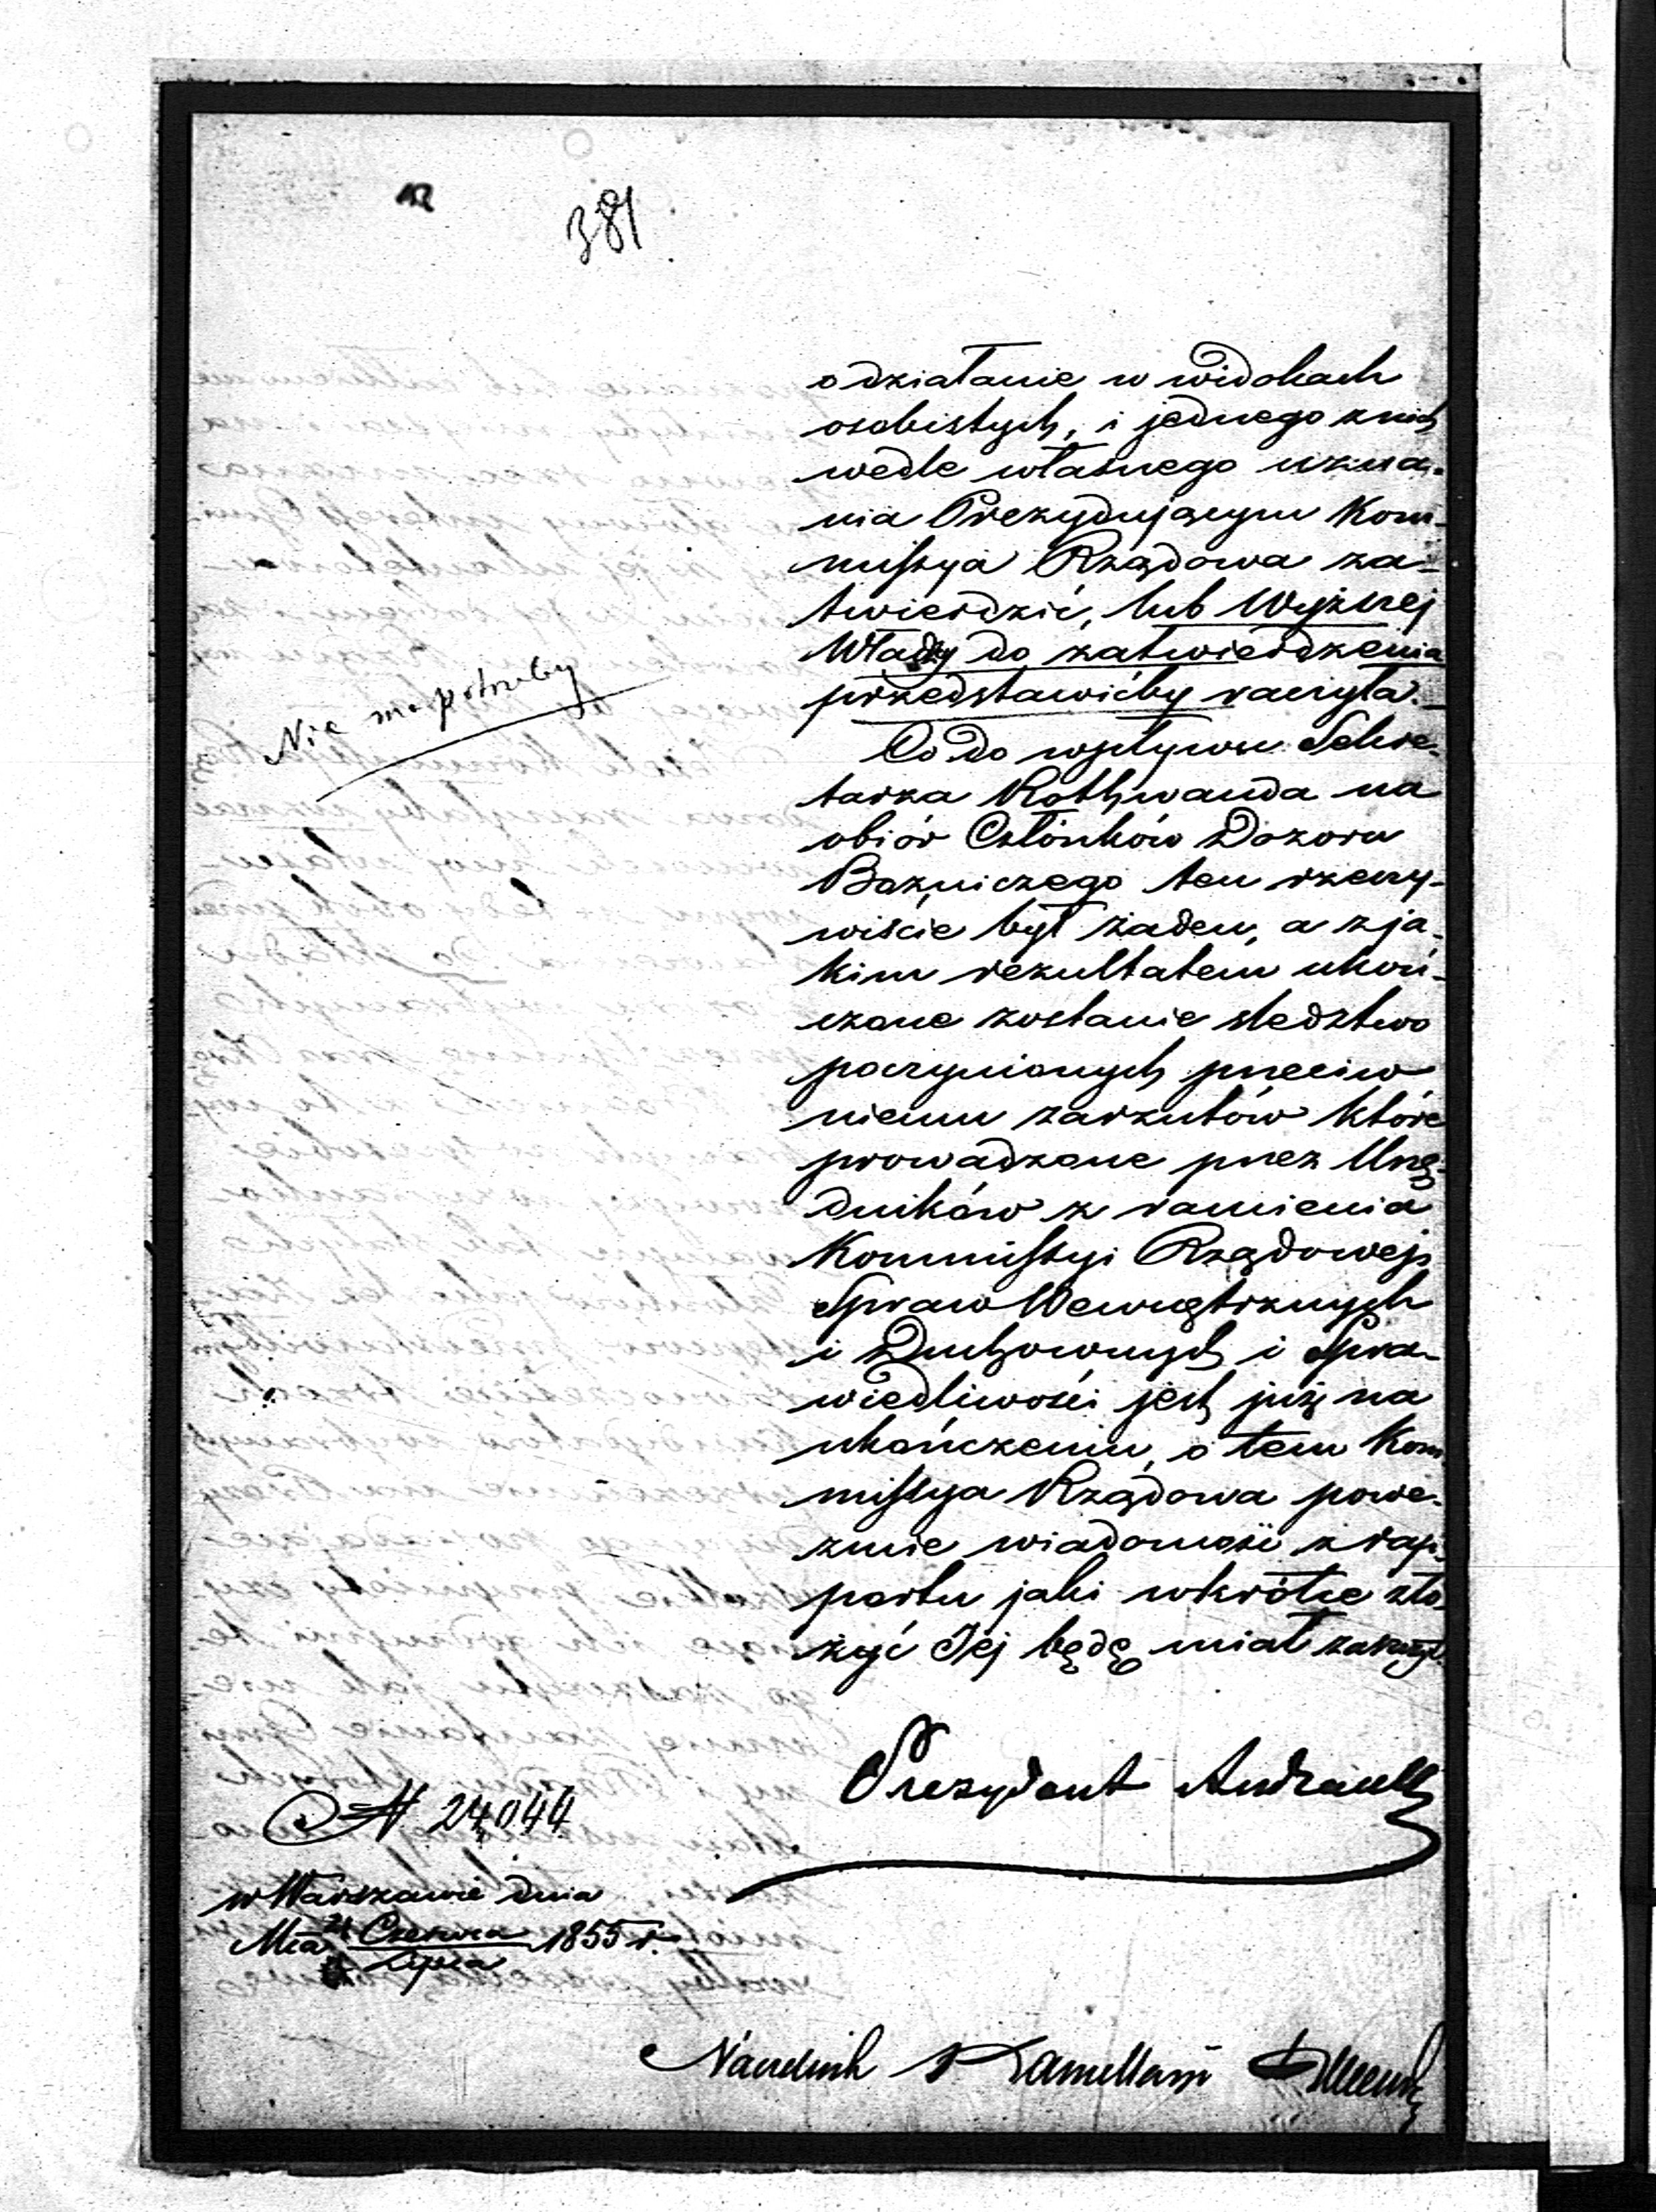 381
o działanie w widokach
osobistych, i jednego z nich
wedle własnego uzna-
nia Prezydującym Kom-
missya Rządowa za-
twierdzić, lub Wyższej
Władzy do zatwierdzenia
przedstawićby raczyła.
Nie ma potrzeby
Co do wpływu Sekre-
tarza Rothwanda na
obiór Członków Dozoru
Bożniczego ten rzeczy-
wiście był żaden, a z ja-
kim rezultatem ukoń-
czone zostanie śledztwo
poczynionych przeciw
niemu zarzutów które
prowadzone przez Urzę-
dników z ramienia
Kommissyi Rządowej
Spraw Wewnętrznych
i Duchownych i Spra-
wiedliwości jest już na
ukończeniu, o tem Kom-
missya Rządowa powe-
źmie wiadomość z rap-
portu jaki wkrótce zło-
żyć Jej będę miał zaszczyt.
Prezydent Andrault
N 24044
w Warszawie dnia
Mca 21 Czerwca 1855 r.
Lipca
Naczelnik Kancellaryi